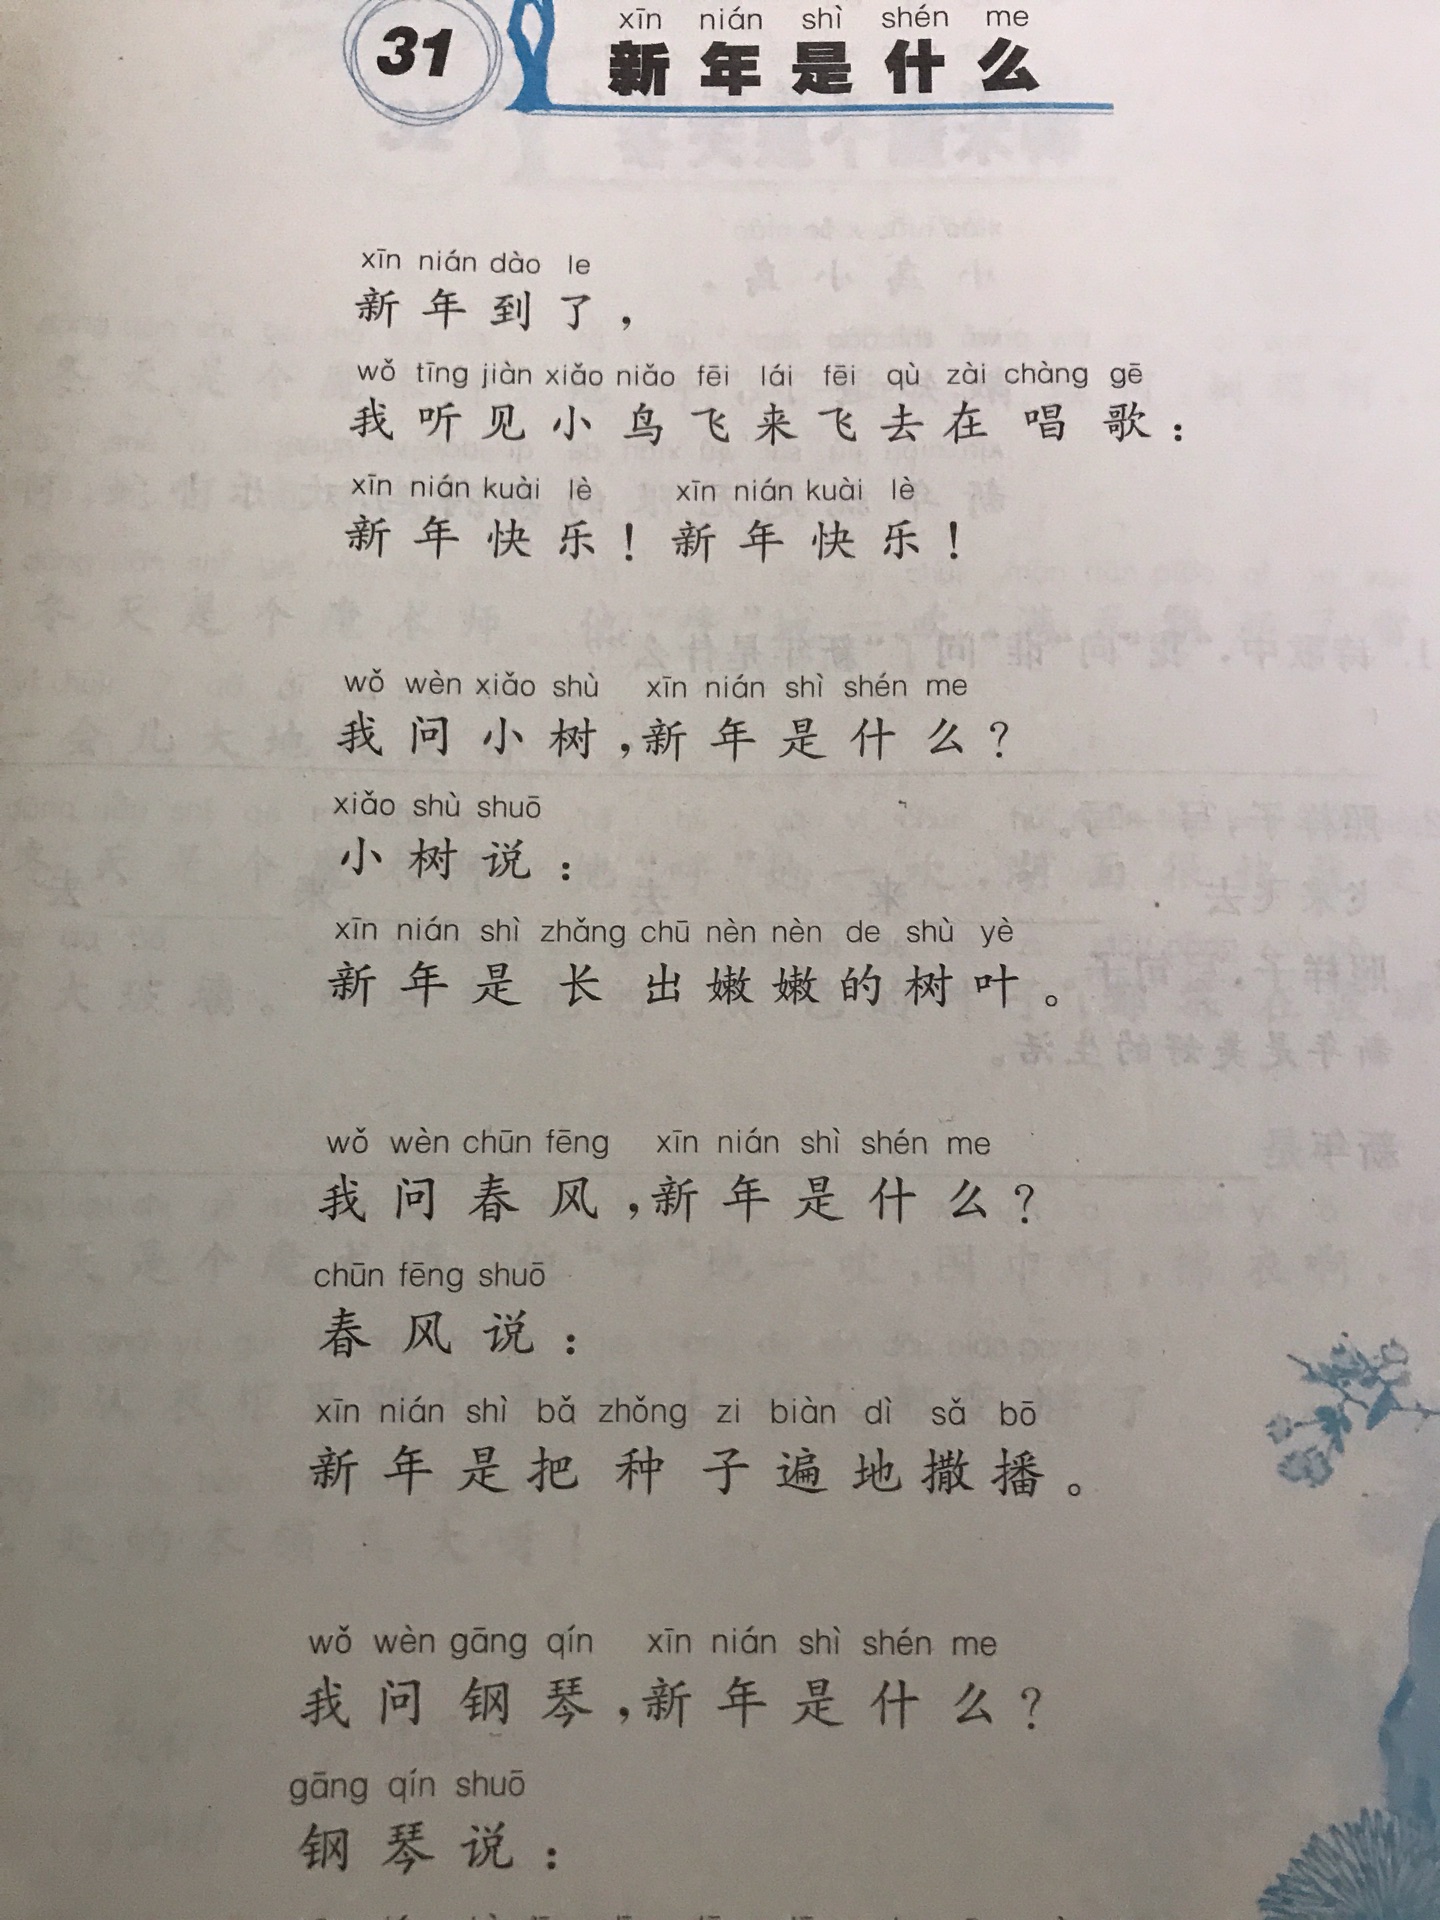 31
xīn nián shì shén me
新年是什么
xīn nián dào le
新年到了，
wǒ tīng jiàn xiǎo niǎo fēi lái fēi qù zài chàng gē
我听见小鸟飞来飞去在唱歌：
xīn nián kuài lè xīn nián kuài lè
新年快乐！新年快乐！
wǒ wèn xiǎo shù xīn nián shì shén me
我问小树，新年是什么？
xiǎo shù shuō
小树说：
xīn nián shì zhǎng chū nèn nèn de shù yè
新年是长出嫩嫩的树叶。
wǒ wèn chūn fēng xīn nián shì shén me
我问春风，新年是什么？
chūn fēng shuō
春风说：
xīn nián shì bǎ zhǒng zi biàn dì sǎ bō
新年是把种子遍地撒播。
wǒ wèn gāng qín xīn nián shì shén me
我问钢琴，新年是什么？
gāng qín shuō
钢琴说：